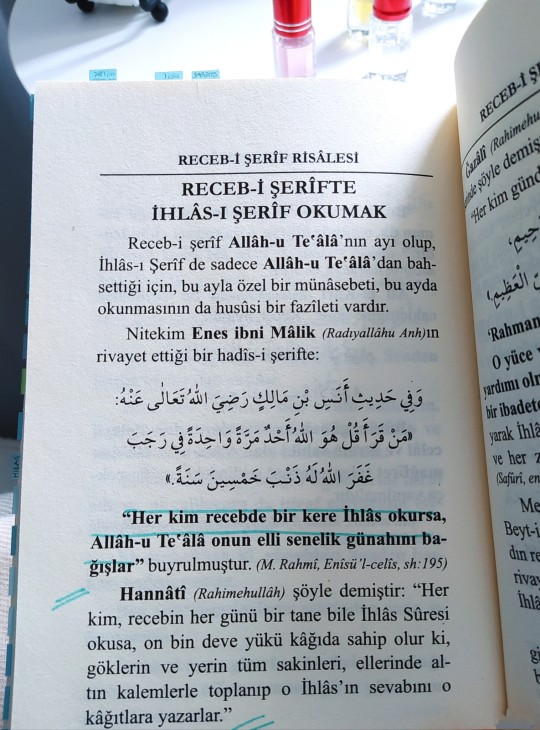 RECEB-İ ŞERÎF RİSÂLESİ
RECEB-İ ŞERÎFTE
İHLÂS-I ŞERÎF OKUMAK
Receb-i şerîf Allâh-u Te‘âlâ’nın ayı olup,
İhlâs-ı Şerîf de sadece Allâh-u Te‘âlâ’dan bah-
settiği için, bu ayla özel bir münâsebeti, bu ayda
okunmasının da husûsi bir fazîleti vardır.
Nitekim Enes ibni Mâlik (Radıyallâhu Anh)ın
rivayet ettiği bir hadîs-i şerifte:
وَفِي حَدِيثِ أَنَسِ بْنِ مَالِكٍ رَضِيَ اللهُ تَعَالٰى عَنْهُ:
«مَنْ قَرَأَ قُلْ هُوَ اللهُ أَحَدٌ مَرَّةً وَاحِدَةً فِي رَجَبَ
غَفَرَ اللهُ لَهُ ذَنْبَ خَمْسِينَ سَنَةً.»
“Her kim recebde bir kere İhlâs okursa,
Allâh-u Te‘âlâ onun elli senelik günahını ba-
ğışlar” buyrulmuştur. (M. Rahmî, Enîsü’l-celîs, sh:195)
Hannâtî (Rahimehullâh) şöyle demiştir: “Her
kim, recebin her günü bir tane bile İhlâs Sûresi
okusa, on bin deve yükü kâğıda sahip olur ki,
göklerin ve yerin tüm sakinleri, ellerinde al-
tın kalemlerle toplanıp o İhlâs’ın sevabını o
kâğıtlara yazarlar.”
RECEB-İ Ş
Ğazâlî (Rahimehu
şöyle demiş
“Her kim günd
الْعَظِيمِ
‘Rahman
O yüce v
yardımı olm
bir ibadete
yarak İhlâ
ve her z
(Safûrî, en
Me
Beyt-i
dın re
rivay
İhlâ